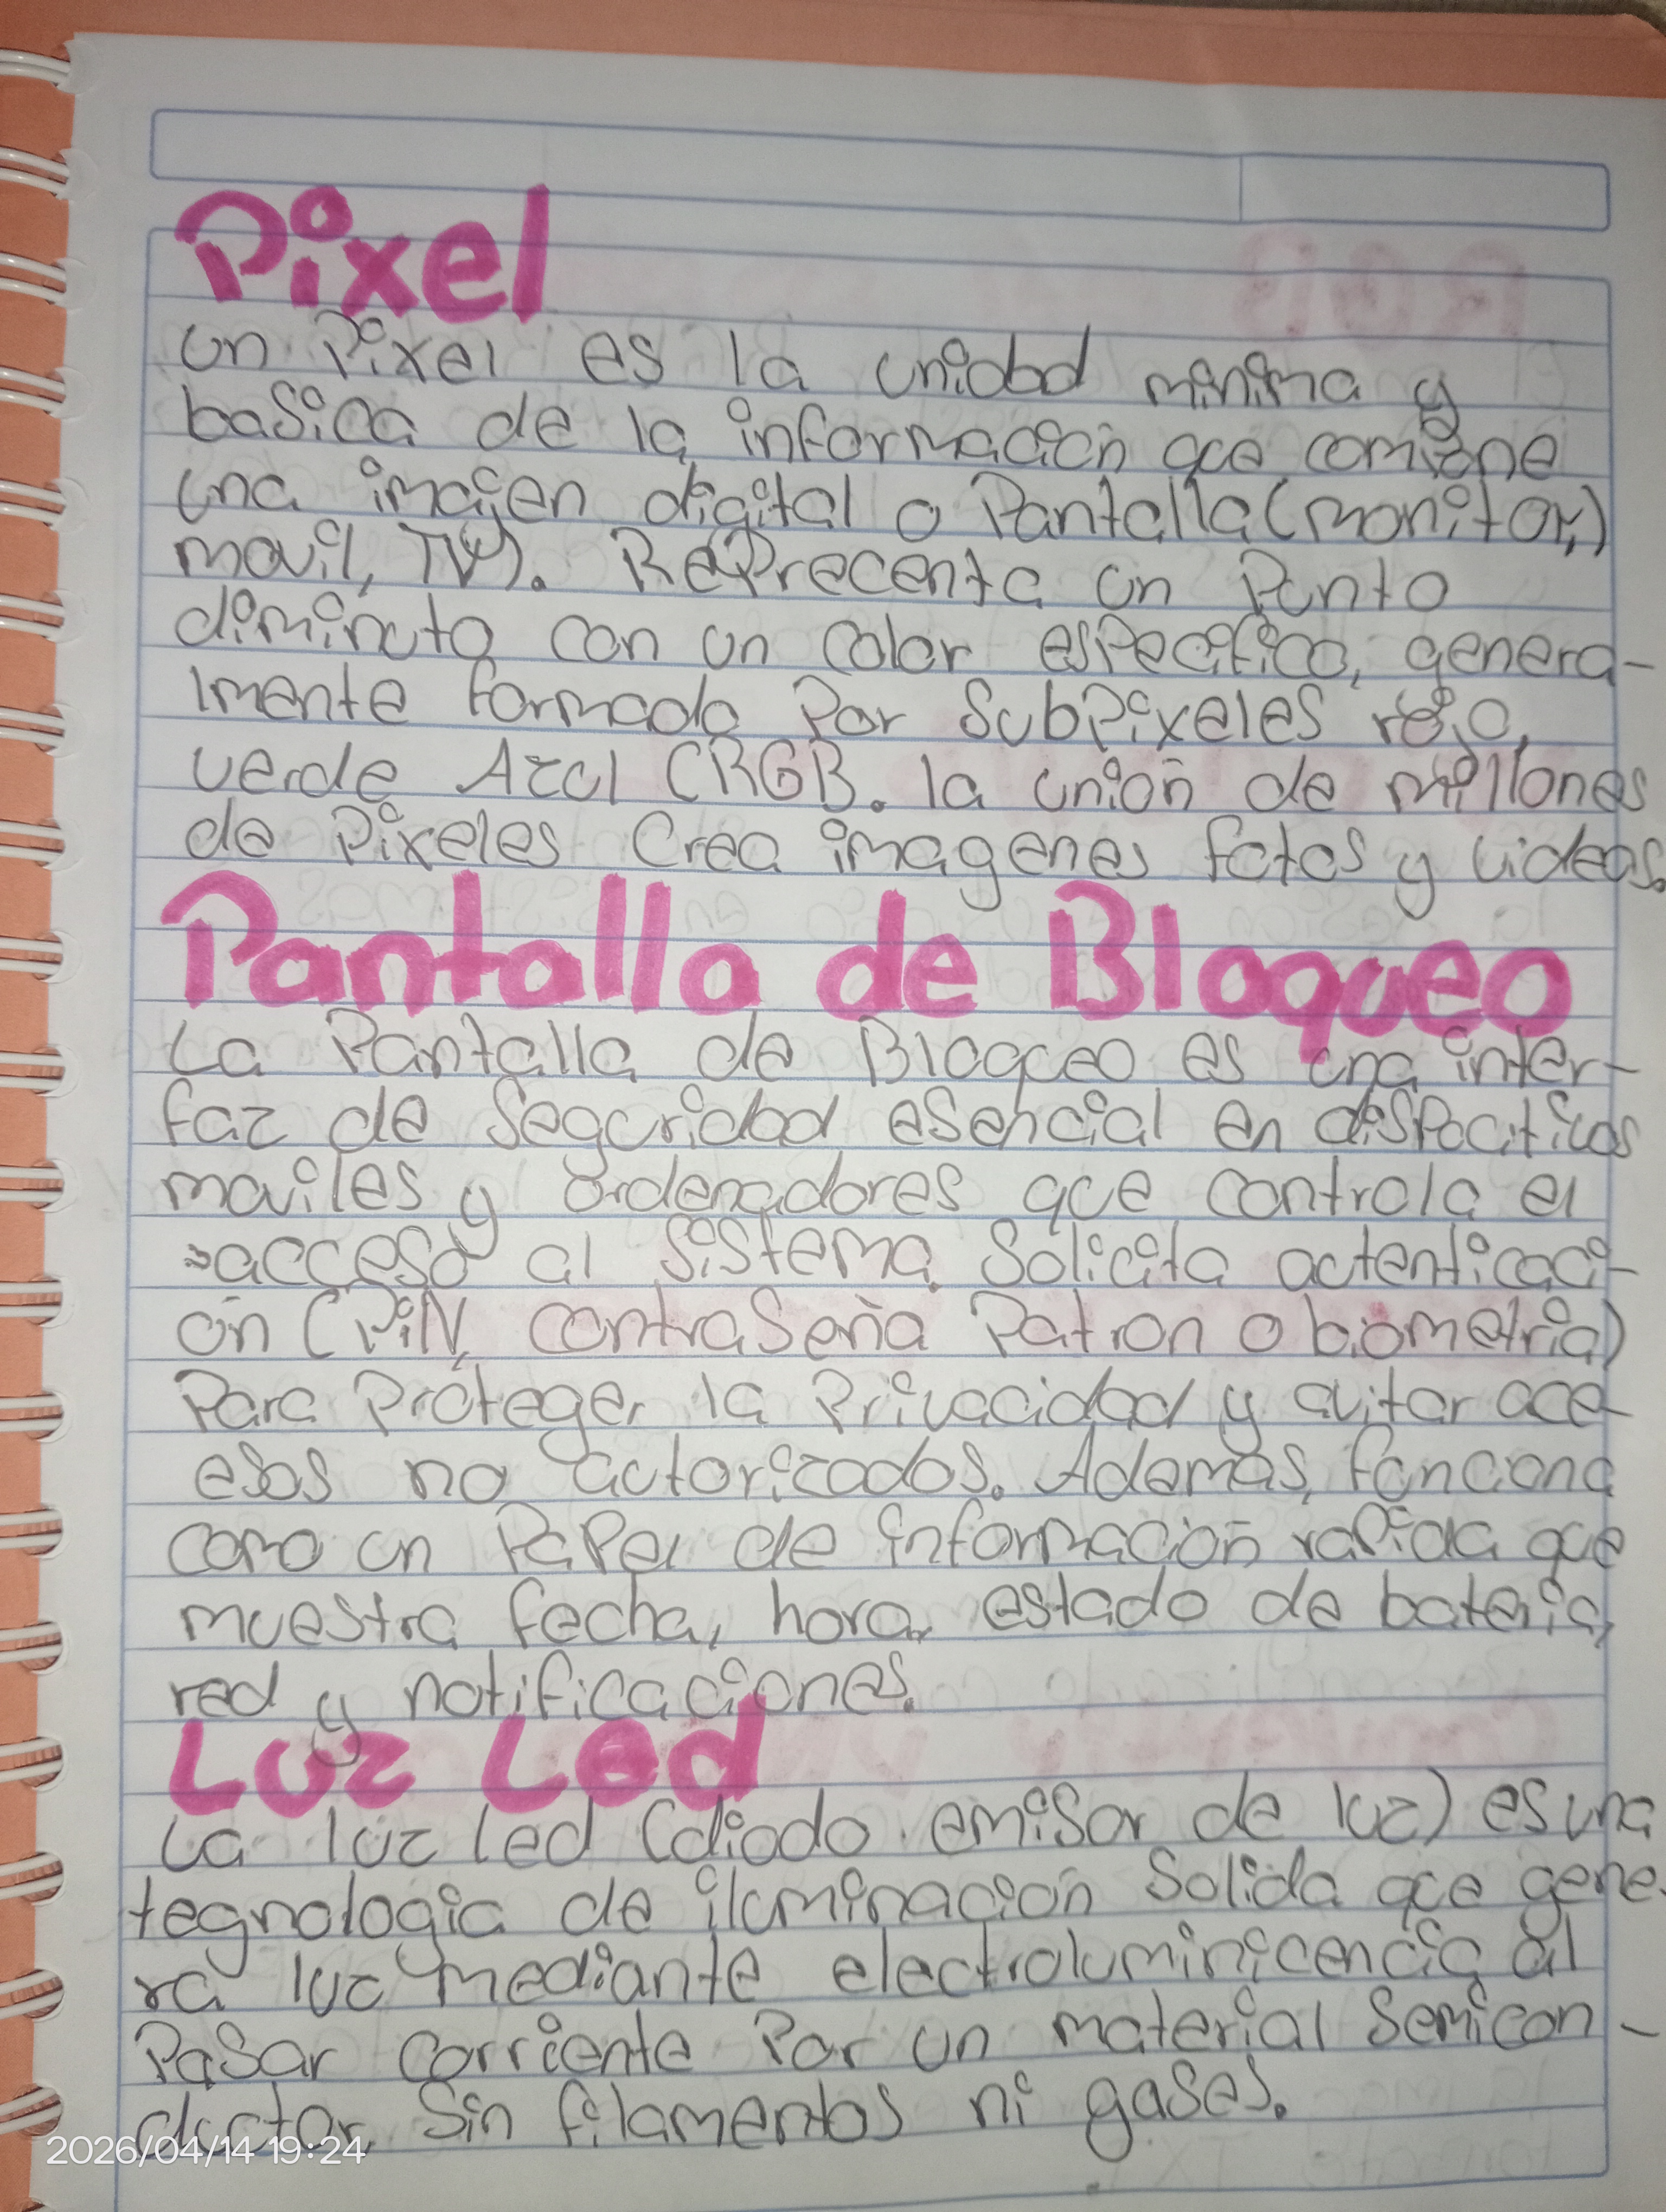 Pixel
un Pixel es la unidad minima y
basica de la información que comtiene
una imajen digital o Pantalla (monitor,)
movil, TV). RePrecenta un Punto
diminuto con un color esPecifico, genera-
lmente formado Por SubPixeles rojo,
verde Azul (RGB. la unión de millones
de Pixeles Crea imagenes fotos y videos.
Pantalla de Bloqueo
La Pantalla de Bloqueo es una inter-
faz de Seguridad esencial en disPocitivos
moviles y ordenadores que controla el
acceso al Sistema. Solicita autenticaci-
ón (PiN, contraseña Patron o biometria)
Para Proteger la Privacidad y evitar acc-
esos no autorizados. Ademas, funciona
como un PaPel de información raPida que
muestra fecha, hora, estado de bateria,
red y notificaciones.
Luz Led
La luz led (diodo emisor de luz) es una
tegnologia de iluminación Solida que gene-
ra luz mediante electroluminicencia al
Pasar corriente Por un material Semicon-
ductor, Sin filamentos ni gases.
2026/04/14 19:24